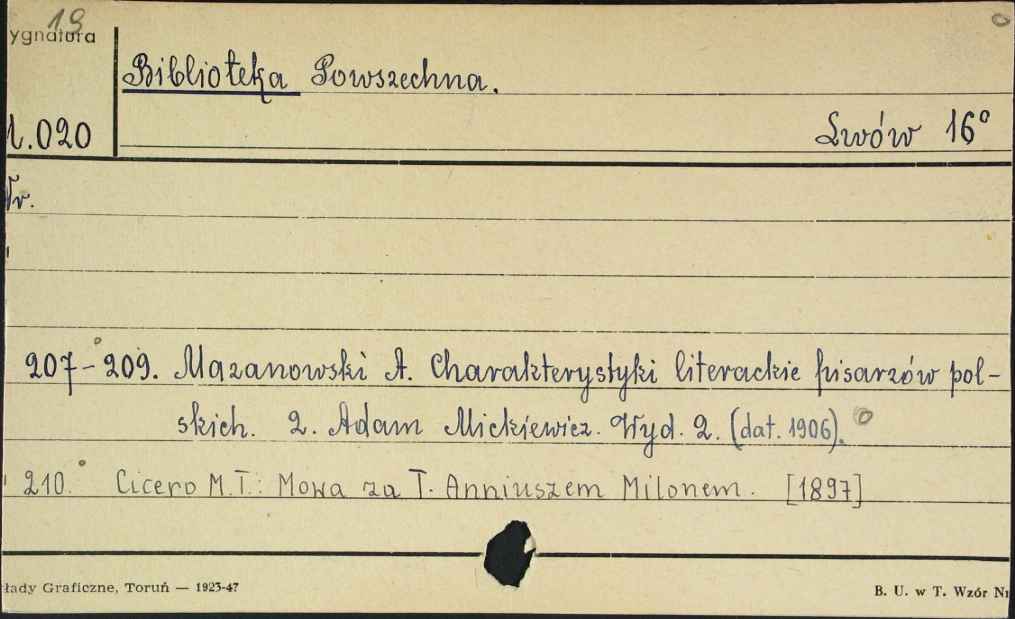 19
ygnatura
Biblioteka Powszechna.
1.020
Lwów 16°
Nr.
207-209. Mazanowski A. Charakterystyki literackie pisarzów pol-
skich. 2. Adam Mickiewicz. Wyd. 2. (dat. 1906).
210. Cicero M.T.: Mowa za T. Anniuszem Milonem. [1897]
łady Graficzne, Toruń — 1923-47
B. U. w T. Wzór Nr